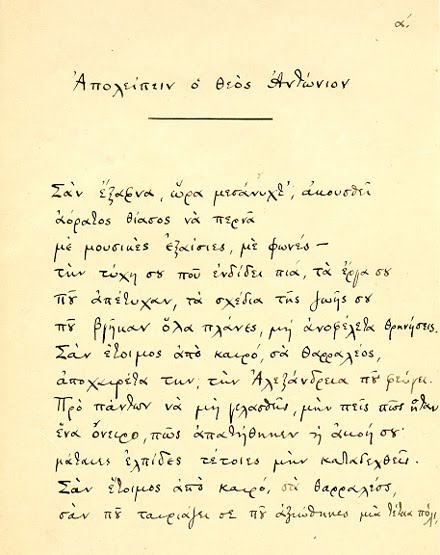 α΄.
Ἀπολείπειν ὁ θεὸς Ἀντώνιον
Σὰν ἔξαφνα, ὥρα μεσάνυχτ', ἀκουσθεῖ
ἀόρατος θίασος νὰ περνᾶ
μὲ μουσικὲς ἐξαίσιες, μὲ φωνές —
τὴν τύχη σου ποῦ ἐνδίδει πιά, τὰ ἔργα σου
ποῦ ἀπέτυχαν, τὰ σχέδια τῆς ζωῆς σου
ποῦ βγῆκαν ὅλα πλάνες, μὴ ἀνοφέλετα θρηνήσεις.
Σὰν ἕτοιμος ἀπὸ καιρό, σὰ θαρραλέος,
ἀποχαιρέτα την, τὴν Ἀλεξάνδρεια ποῦ φεύγει.
Πρὸ πάντων νὰ μὴ γελασθῇς, μὴν πεῖς πῶς ἦταν
ἕνα ὄνειρο, πῶς ἀπατήθηκεν ἡ ἀκοή σου·
μάταιες ἐλπίδες τέτοιες μὴν καταδεχθεῖς.
Σὰν ἕτοιμος ἀπὸ καιρό, σὰ θαρραλέος,
σὰν ποῦ ταιριάζει σε ποῦ ἀξιώθηκες μιὰ τέτοια πόλι,